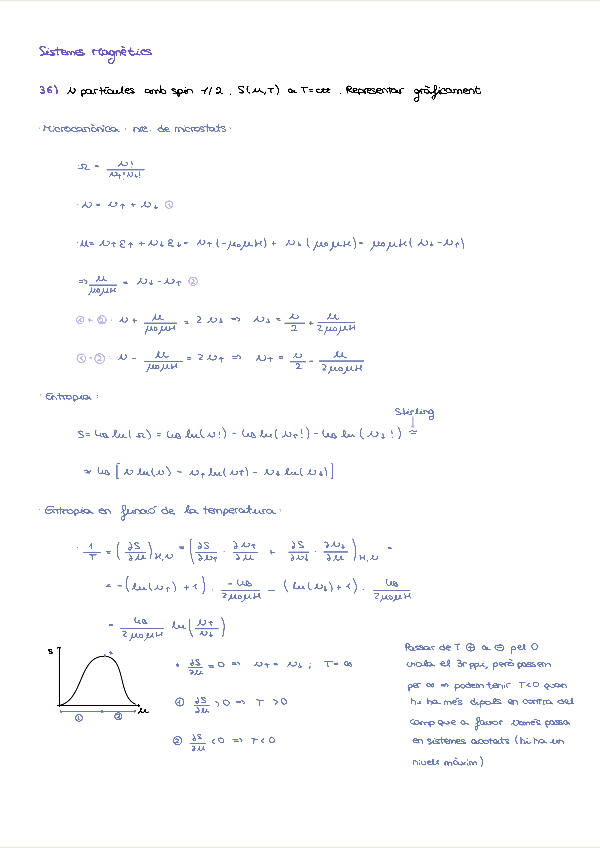 Sistemes Magnètics
36) N partícules amb spin 1/2. S(U,T) a T=cte. Representar gràficament
· Microcanònica: nre. de microstats:
Ω = N! / N↑! N↓!
· N = N↑ + N↓ ①
· U = N↑ε↑ + N↓ε↓ = N↑(-μ₀μH) + N↓(μ₀μH) = μ₀μH(N↓-N↑)
⇒ U/μ₀μH = N↓ - N↑ ②
①+②: N + U/μ₀μH = 2N↓ ⇒ N↓ = N/2 + U/2μ₀μH
①-②: N - U/μ₀μH = 2N↑ ⇒ N↑ = N/2 - U/2μ₀μH
· Entropia:
Stirling
S = kB ln(Ω) = kB ln(N!) - kB ln(N↑!) - kB ln(N↓!) ≈
≈ kB [N ln(N) - N↑ ln(N↑) - N↓ ln(N↓)]
· Entropia en funció de la temperatura:
· 1/T = (∂S/∂U)H,N = (∂S/∂N↑ · ∂N↑/∂U + ∂S/∂N↓ · ∂N↓/∂U)H,N =
= -(ln(N↑)+1) · -kB/2μ₀μH - (ln(N↓)+1) · kB/2μ₀μH
= kB/2μ₀μH ln(N↑/N↓)
S
U
① ②
* ∂S/∂U = 0 ⇒ N↑ = N↓ ; T=∞
① ∂S/∂U > 0 ⇒ T > 0
② ∂S/∂U < 0 ⇒ T < 0
Passar de T ⊕ a ⊖ pel 0
viola el 3r ppi, però passem
per ∞ ⇒ podem tenir T<0 quan
hi ha més dipols en contra del
camp que a favor. Només passa
en sistemes acotats (hi ha un
nivell màxim)